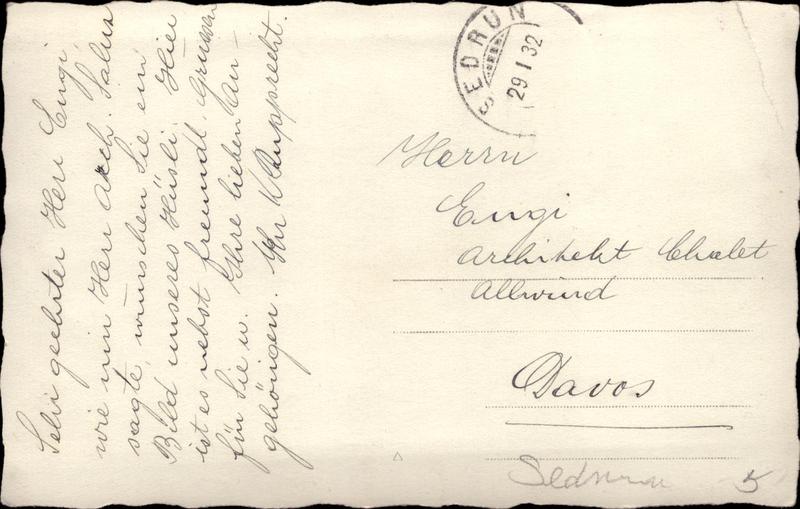 Sehr geehrter Herr Engi,
wie mir Herr Arch. Salva
sagte, wünschen Sie ein
Bild unseres Hüsli. Hier
ist es nebst freundl. Grüssen
für Sie u. Ihre lieben An-
gehörigen. Ihr W Rupprecht.
SEDRUN
29 I 32
Herrn
Engi
Architekt Chalet
Allwind
Davos
Sedrun 5